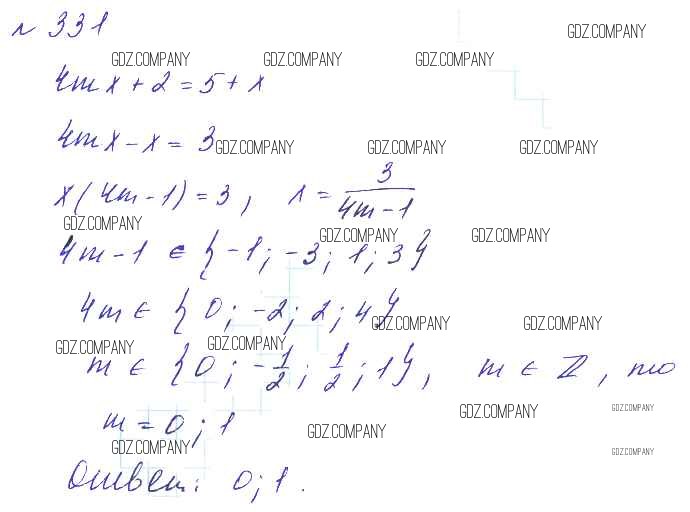 № 331
GDZ.COMPANY
GDZ.COMPANY GDZ.COMPANY GDZ.COMPANY
4mx + 2 = 5 + x
4mx - x = 3
GDZ.COMPANY GDZ.COMPANY GDZ.COMPANY
x(4m - 1) = 3, x = 3/(4m - 1)
GDZ.COMPANY GDZ.COMPANY GDZ.COMPANY
4m - 1 ∈ {-1; -3; 1; 3}
4m ∈ {0; -2; 2; 4}
GDZ.COMPANY GDZ.COMPANY
GDZ.COMPANY GDZ.COMPANY
m ∈ {0; -1/2; 1/2; 1}, m ∈ Z, то
GDZ.COMPANY GDZ.COMPANY
m = 0; 1
GDZ.COMPANY GDZ.COMPANY GDZ.COMPANY
Ответ: 0; 1.